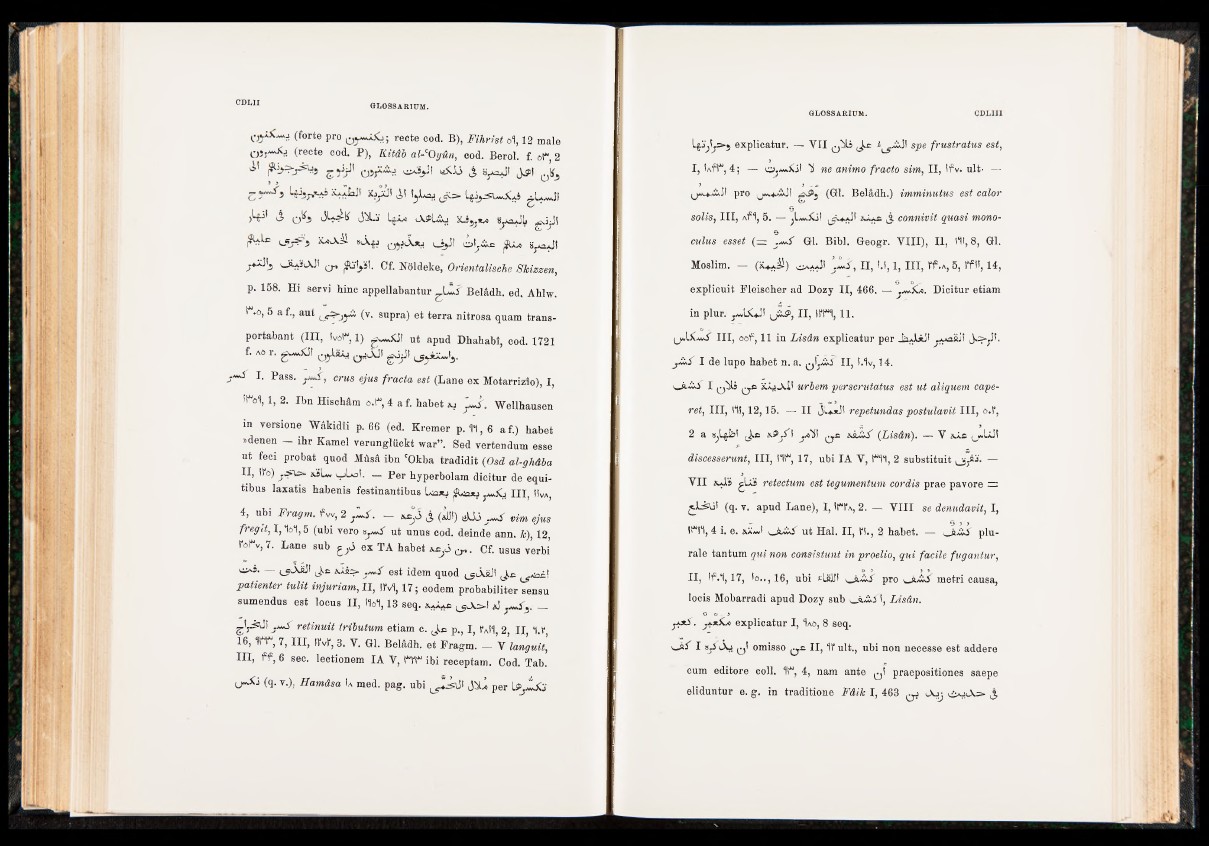 CDLII GLOSSARIUM.
(forte pro يكنسون; recte cod. B), Fihrist ٥٩, 12 male
(recte cod. P), Kitâb al-ʿOyûn, cod. Berol. f. ٥٣, 2
وكان اهل البصرة فى ذلك الوقت يشترون الزنوج ويخرجونهم الى
السباخ فيكسحونها حتى يصلوا الى التربة الطيبة فيعمرونها وكسوح
الزنج بالبصرة معروفة يشاهد منها تلال كالجبال وكان فى انهار
البصرة منهم عشرات الوف يعذبون بهذه الخدمة وتجرى عليهم
اقواتهم من الدقيق والتمر. Cf. Nöldeke, Orientalische Skizzen,
p. 158. Hi servi hinc appellabantur كسّاح Belâdh. ed. Ahlw.
٣٠٥, 5 a f., aut شورجى (v. supra) et terra nitrosa quam trans-
portabant (III, ١٧٥٣, 1) الكسح ut apud Dhahabî, cod. 1721
f. ٨٥ r. واستغوى الزنج الذين ينقلون الكسح.
كسر I. Pass. كسر, crus ejus fracta est (Lane ex Motarrizîo), I,
١٣٥٩, 1, 2. Ibn Hischâm ٥٠٣, 4 a f. habet كسر به. Wellhausen
in versione Wâkidîi p. 66 (ed. Kremer p. ٩٦, 6 a f.) habet
»denen — ihr Kamel verunglückt war”. Sed vertendum esse
ut feci probat quod Mûsâ ibn ʿOkba tradidit (Osd al-ghâba
II, ٢٢٥) اصاب ساقه حجر. — Per hyperbolam dicitur de equi-
tibus laxatis habenis festinantibus يكسر بعضهم بعضا III, ١١٧٨,
4, ubi Fragm. ۴٧٧, 2 كسّر. — كسر ذلك (الله) فى ذرعه vim ejus
fregit, I, ١٥٦, 5 (ubi vero كسره ut unus cod. deinde ann. k), 12,
٢٥٣٧, 7. Lane sub ذرع ex TA habet من ذرعه. Cf. usus verbi
فتّ. — كسر جفنه على القذى est idem quod اغضى على القذى
patienter tulit injuriam, II, ١٢٧٦, 17; eodem probabiliter sensu
sumendus est locus II, ١٩٥٩, 13 seq. وكسر له احدى عينيه. —
كسر الخراج retinuit tributum etiam c. على p., I, ٢٨١٩, 2, II, ٩٠٢,
16, ٩٢٣, 7, III, ١٢٧٢, 3. V. Gl. Belâdh. et Fragm. — V languit,
III, ۴۴, 6 sec. lectionem IA V, ٣٦٣ ibi receptam. Cod. Tab.
نكس (q. v.), Hamâsa ١٨ med. pag. ubi ملال الضحى per تكسرها
GLOSSARIUM. CDLIII
وحرارتها explicatur. — VII انكسر على فلان spe frustratus est,
I, ١٨۴٣, 4; — لا انكسرت ne animo fracto sim, II, ١۴٧ ult. —
انكسر الشمس pro وهج الشمس (Gl. Belâdh.) imminutus est calor
solis, III, ٨۴٩, 5. — انكسار الشىء فى عينه connivit quasi mono-
culus esset (= كسر Gl. Bibl. Geogr. VIII), II, ١٩١, 8, Gl.
Moslim. — كسر البيت (الخيمة), II, ١٠١, 1, III, ٢۴٠٨, 5, ٢۴١١, 14,
explicuit Fleischer ad Dozy II, 466. — مكسر. Dicitur etiam
in plur. هش المكاسر, II, ١٢٣٩, 11.
كسكاس III, ٥٥۴, 11 in Lisân explicatur per الرجل القصير الغليظ.
كشر I de lupo habet n. a. كشران II, ١٠٩٧, 14.
كشف I المدينة عن فلان urbem perscrutatus est ut aliquem cape-
ret, III, ٢٦١, 12, 15. — II العمال repetundas postulavit III, ٥٠٢,
2 a كشفه عن الامر اكرهه على اظهاره (Lisân). — V الناس عنه
discesserunt, III, ١٩٢٣, 17, ubi IA V, ٣٦٩, 2 substituit تفرق. —
VII قناع قلبه retectum est tegumentum cordis prae pavore =
انخلع (q. v. apud Lane), I, ٣٢٨, 2. — VIII se denudavit, I,
٣٦٩, 4 i. e. كشف استه ut Hal. II, ٢٩٠, 2 habet. — كشف plu-
rale tantum qui non consistunt in proelio, qui facile fugantur,
II, ١۴٠٩, 17, ١٥٠٠, 16, ubi كشف اللقاء pro كشف metri causa,
locis Mobarradi apud Dozy sub كشف I, Lisân.
كعبر. مكعبر explicatur I, ٩٨٥, 8 seq.
كفّ I ان يذكره omisso عن II, ٩٢ ult., ubi non necesse est addere
cum editore coll. ٩٣, 4, nam ante ان praepositiones saepe
eliduntur e. g. in traditione Fâik I, 463 فى حديث زيد بن